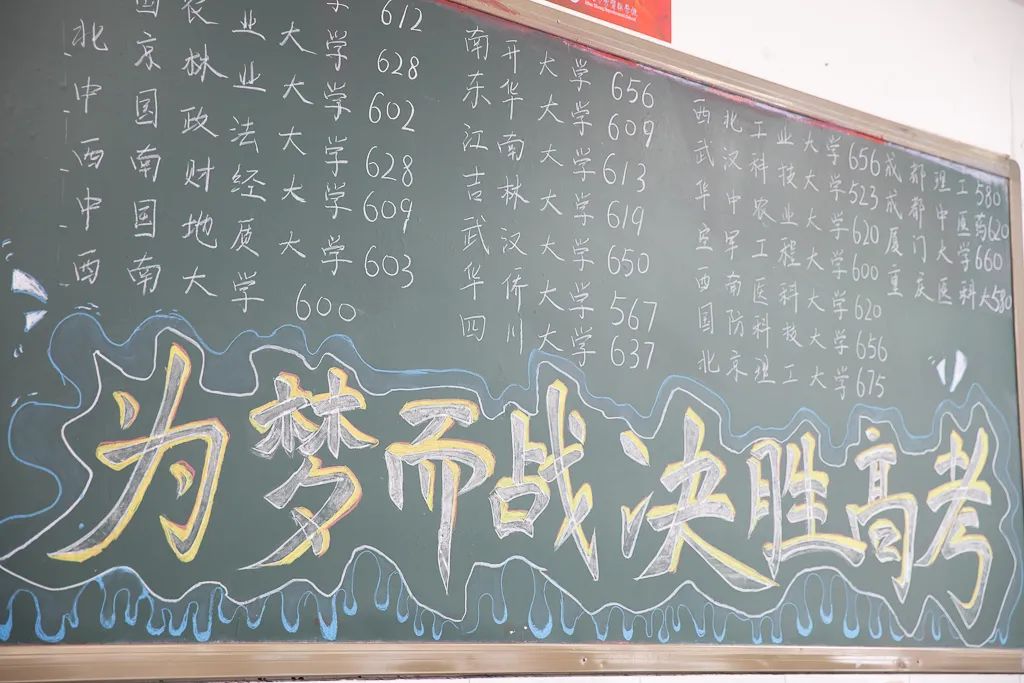 学 612
国农业大学 628
北京林业大学 602
中国政法大学 628
西南财经大学 609
中国地质大学 603
西南大学 600
南开大学 656
东华大学 609
江南大学 613
吉林大学 619
武汉大学 650
华侨大学 567
四川大学 637
西北工业大学 656
武汉科技大学 523
华中农业大学 620
空军工程大学 600
西南医科大学 620
国防科技大学 656
北京理工大学 675
成都理工 580
成都中医药 620
厦门大学 660
重庆医科大 580
为梦而战 决胜高考